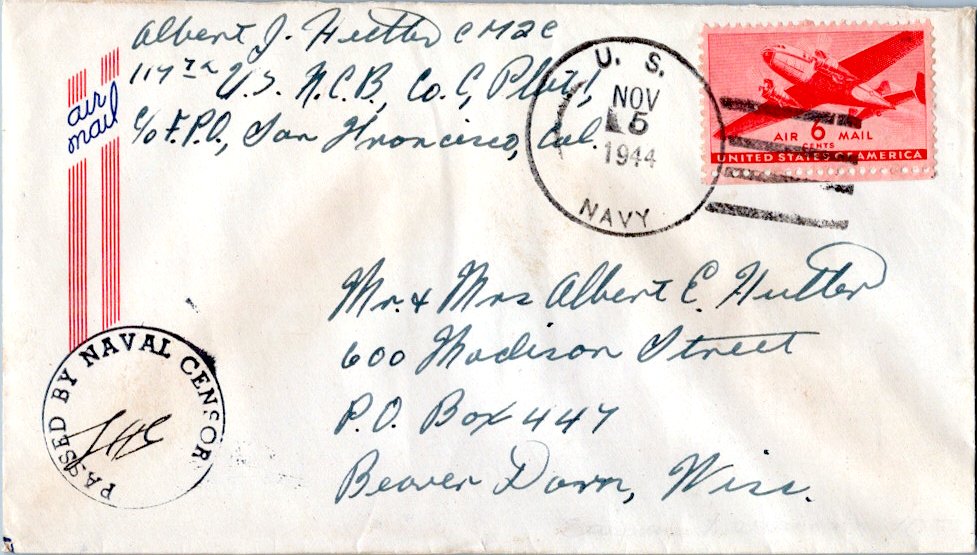 Albert J. Hutter CM2C
117th U.S. N.C.B., Co. C, Plat. 1,
C/o F.P.O., San Francisco, Cal.
air
mail
U. S.
NOV
5
1944
NAVY
AIR 6 MAIL
CENTS
UNITED STATES OF AMERICA
Mr. & Mrs Albert E. Hutter
600 Madison Street
P.O. Box 447
Beaver Dam, Wisc.
PASSED BY NAVAL CENSOR